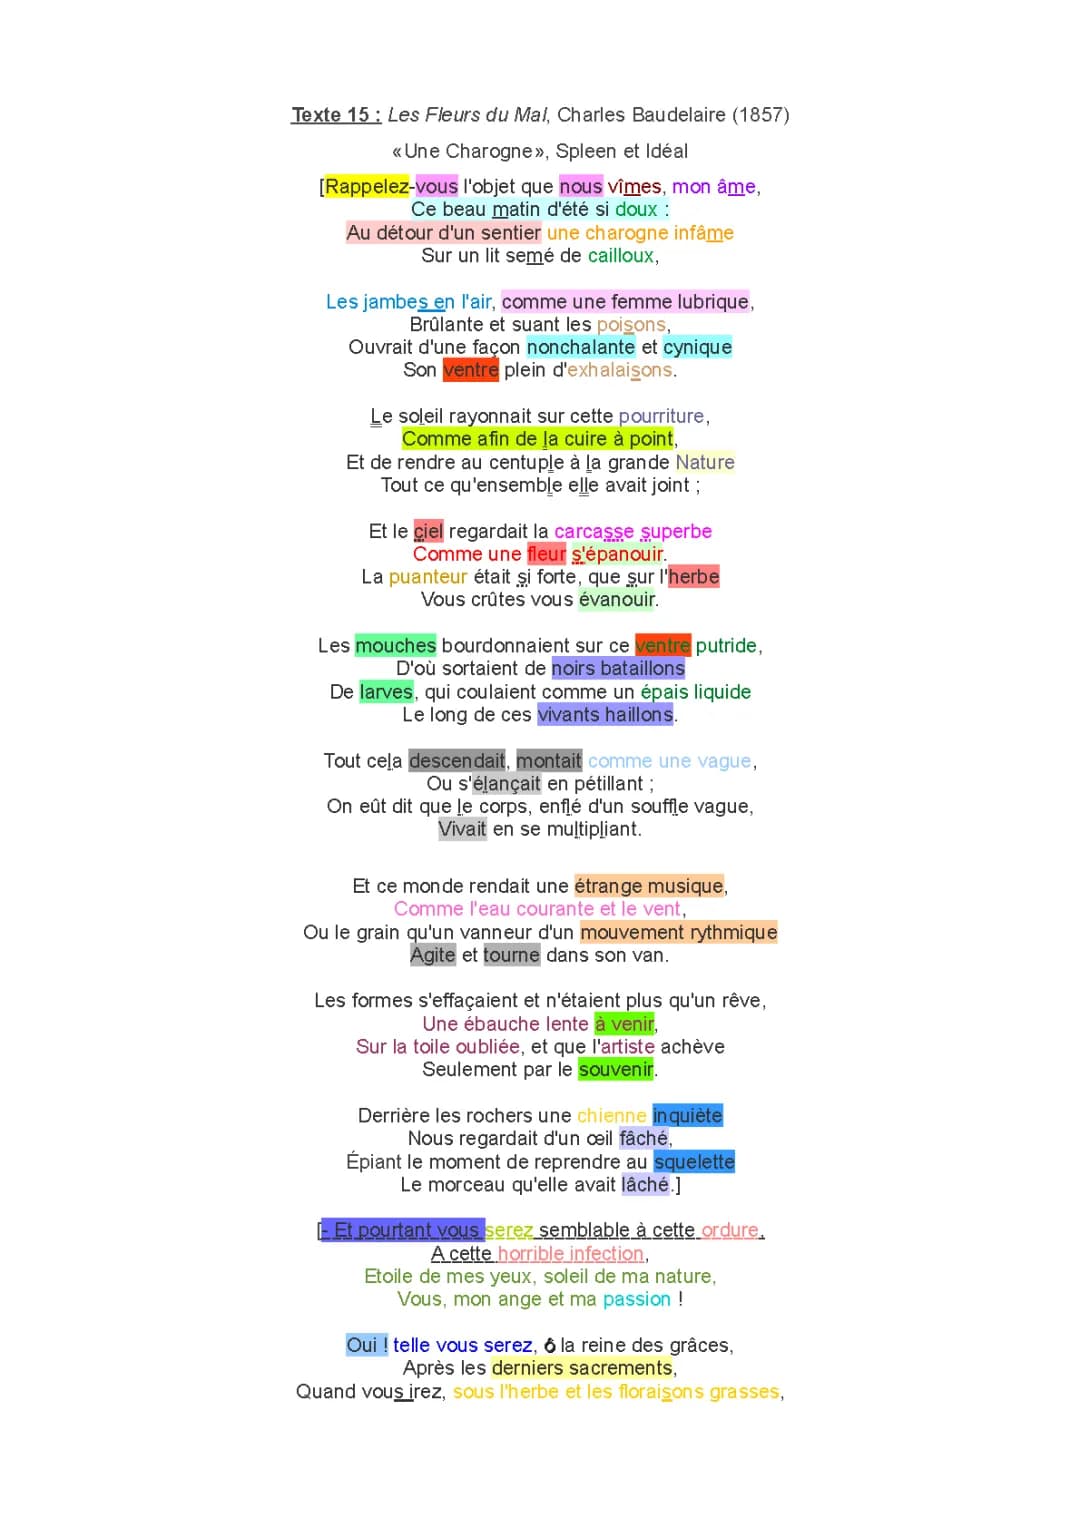 Texte 15 : Les Fleurs du Mal, Charles Baudelaire (1857)
«Une Charogne», Spleen et Idéal
[Rappelez-vous l'objet que nous vîmes, mon âme,
Ce beau matin d'été si doux :
Au détour d'un sentier une charogne infâme
Sur un lit semé de cailloux,
Les jambes en l'air, comme une femme lubrique,
Brûlante et suant les poisons,
Ouvrait d'une façon nonchalante et cynique
Son ventre plein d'exhalaisons.
Le soleil rayonnait sur cette pourriture,
Comme afin de la cuire à point,
Et de rendre au centuple à la grande Nature
Tout ce qu'ensemble elle avait joint ;
Et le ciel regardait la carcasse superbe
Comme une fleur s'épanouir.
La puanteur était si forte, que sur l'herbe
Vous crûtes vous évanouir.
Les mouches bourdonnaient sur ce ventre putride,
D'où sortaient de noirs bataillons
De larves, qui coulaient comme un épais liquide
Le long de ces vivants haillons.
Tout cela descendait, montait comme une vague,
Ou s'élançait en pétillant ;
On eût dit que le corps, enflé d'un souffle vague,
Vivait en se multipliant.
Et ce monde rendait une étrange musique,
Comme l'eau courante et le vent,
Ou le grain qu'un vanneur d'un mouvement rythmique
Agite et tourne dans son van.
Les formes s'effaçaient et n'étaient plus qu'un rêve,
Une ébauche lente à venir,
Sur la toile oubliée, et que l'artiste achève
Seulement par le souvenir.
Derrière les rochers une chienne inquiète
Nous regardait d'un œil fâché,
Épiant le moment de reprendre au squelette
Le morceau qu'elle avait lâché.]
[- Et pourtant vous serez semblable à cette ordure,
A cette horrible infection,
Etoile de mes yeux, soleil de ma nature,
Vous, mon ange et ma passion !
Oui ! telle vous serez, ô la reine des grâces,
Après les derniers sacrements,
Quand vous irez, sous l'herbe et les floraisons grasses,